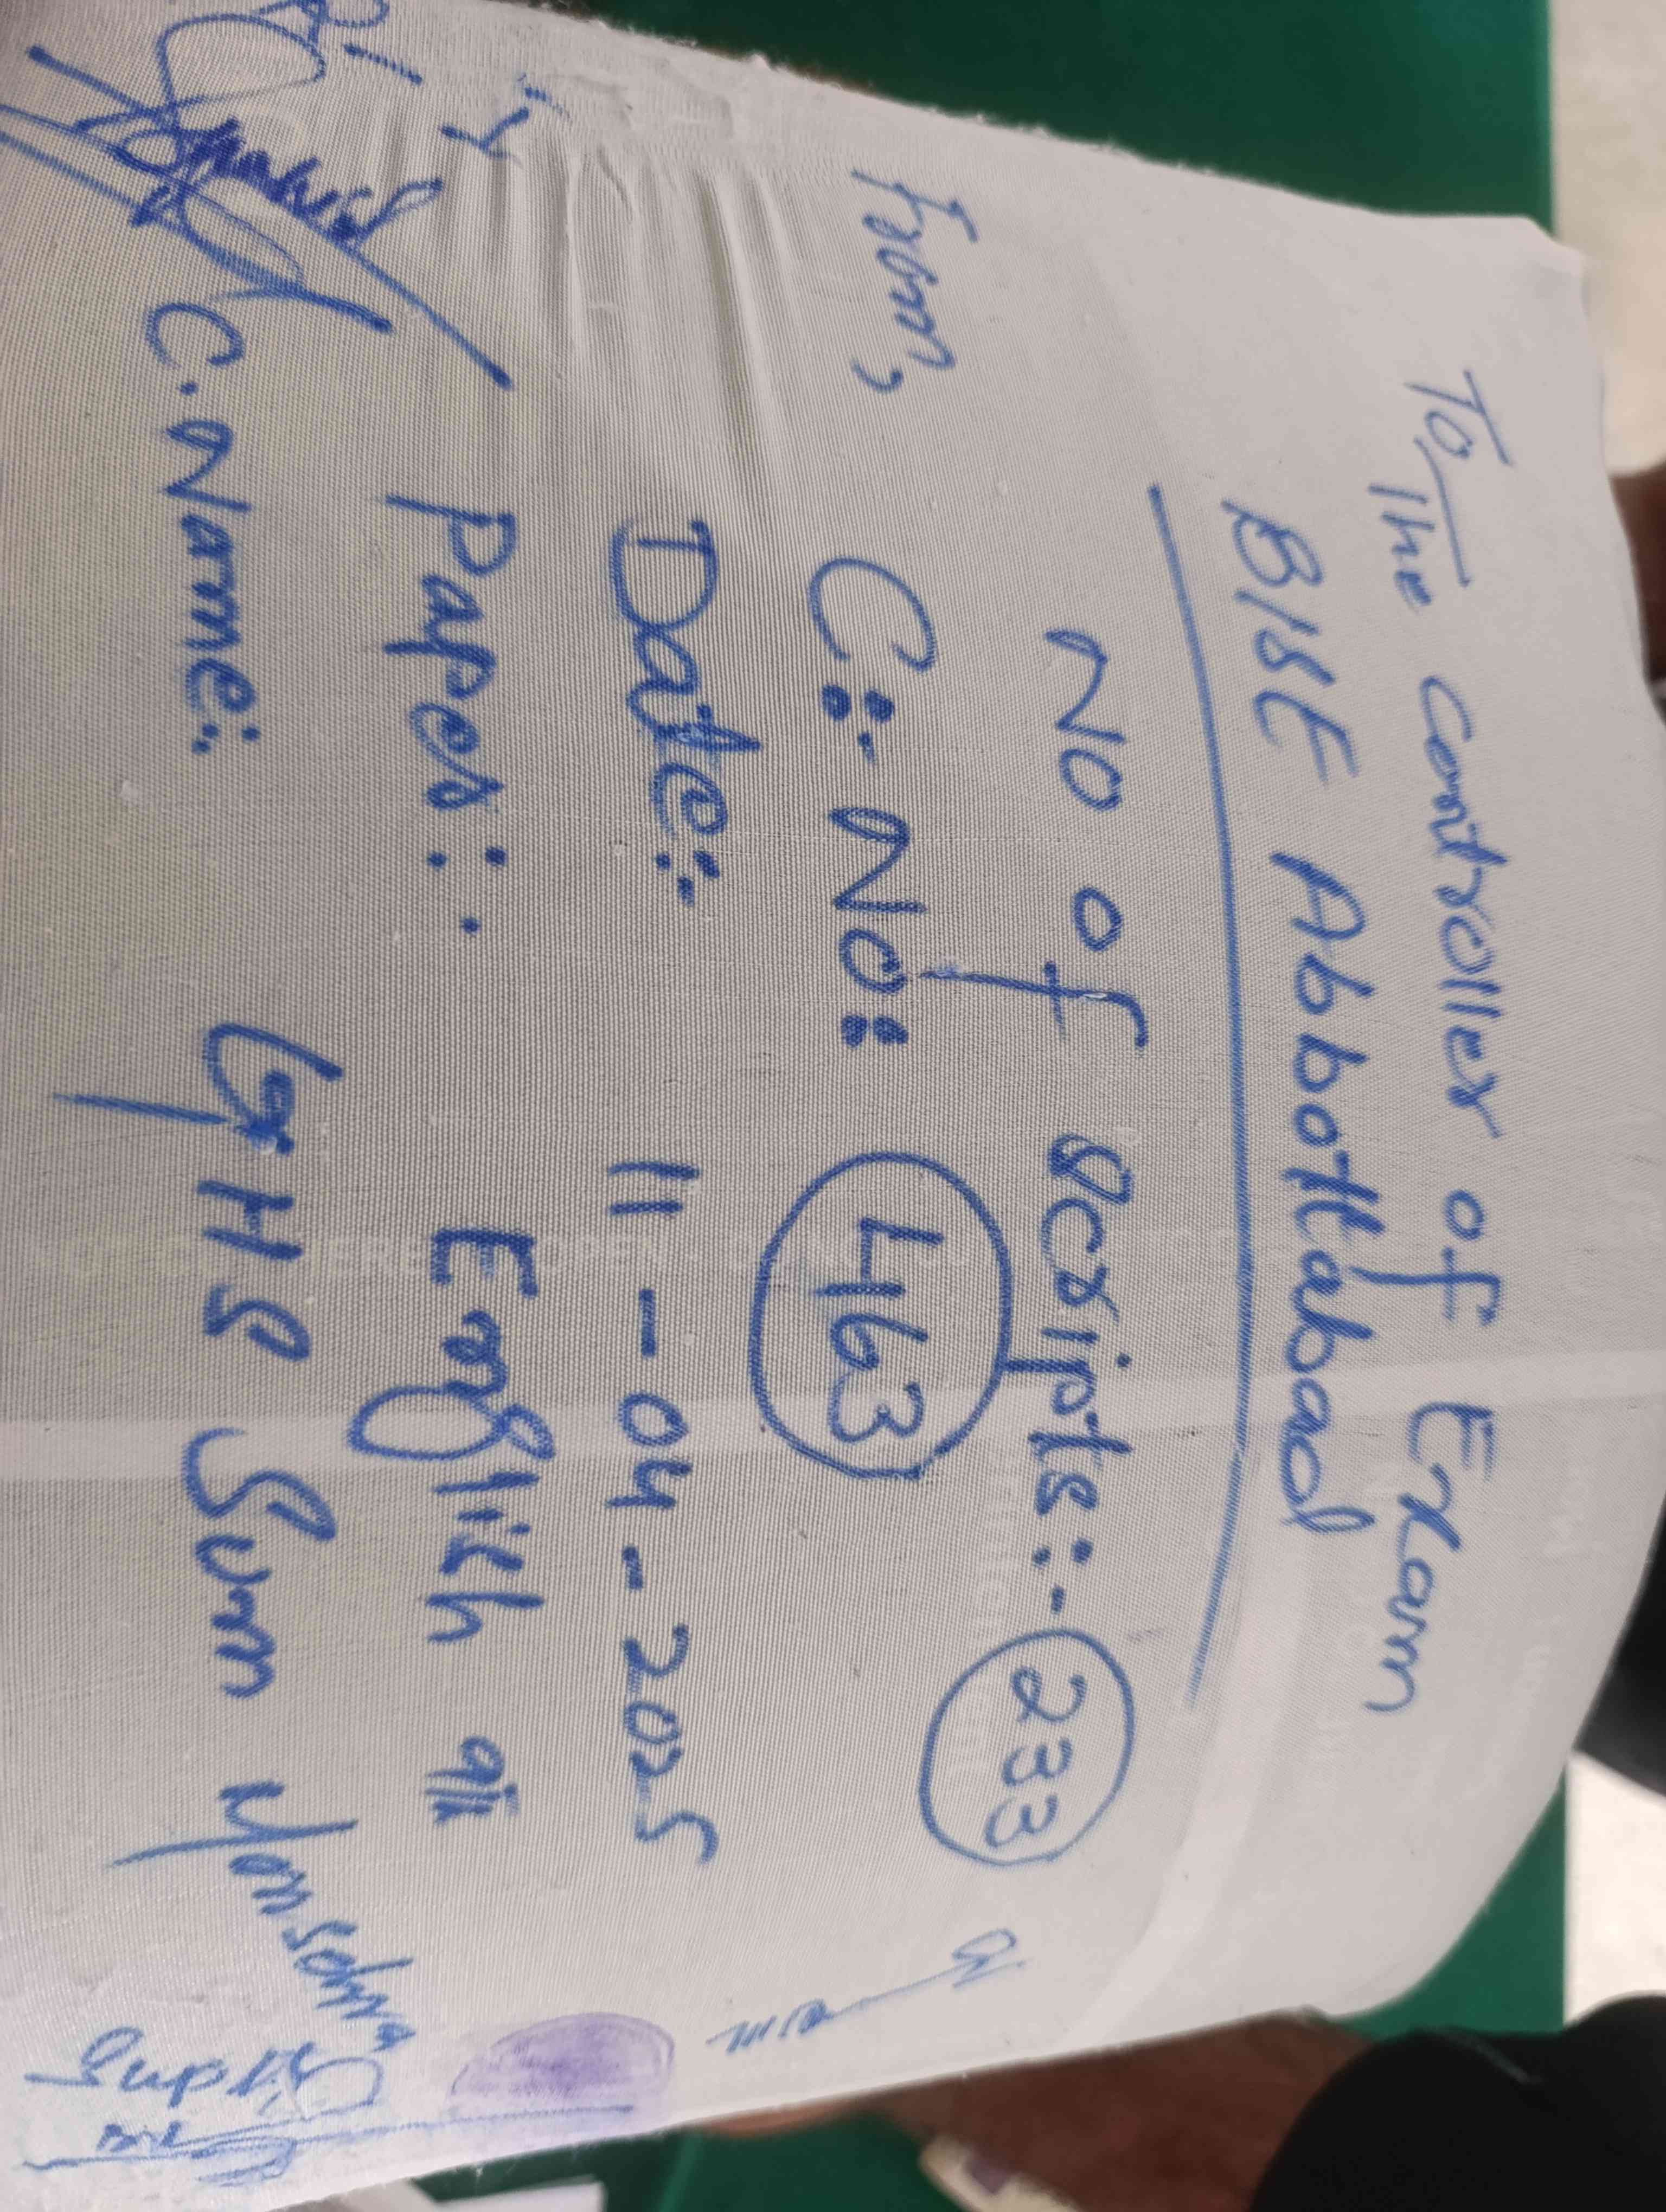 To, The Controller of Exam
BISE Abbottabad
No of Scripts:- 233
From,
C:- No: 463
Date:- 11-04-2025
Paper:. English 9th
C.Name:. GHS Sum Mansehra
Supdt